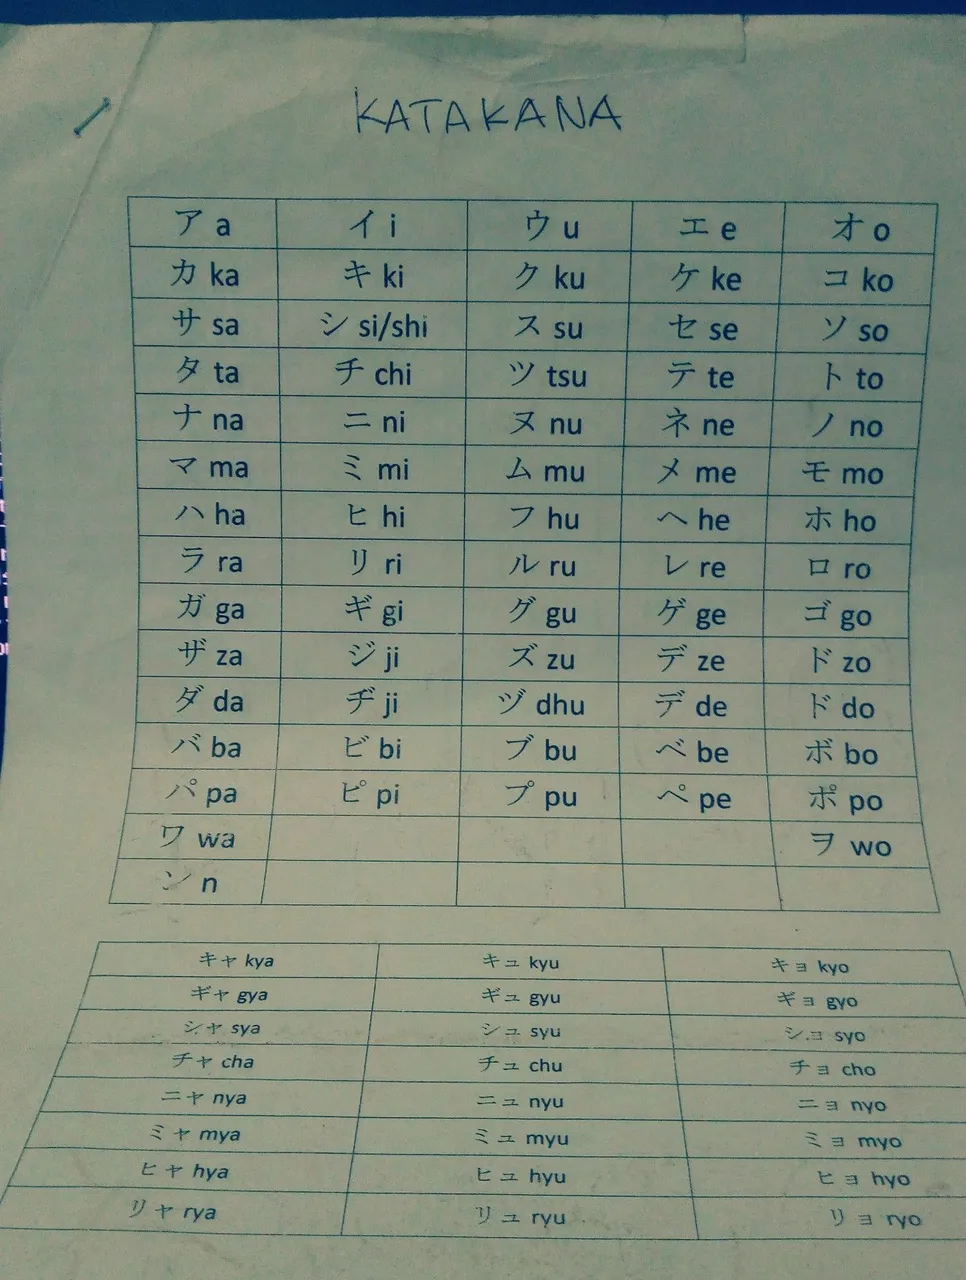 KATAKANA
ア a イ i ウ u エ e オ o
カ ka キ ki ク ku ケ ke コ ko
サ sa シ si/shi ス su セ se ソ so
タ ta チ chi ツ tsu テ te ト to
ナ na ニ ni ヌ nu ネ ne ノ no
マ ma ミ mi ム mu メ me モ mo
ハ ha ヒ hi フ hu ヘ he ホ ho
ラ ra リ ri ル ru レ re ロ ro
ガ ga ギ gi グ gu ゲ ge ゴ go
ザ za ジ ji ズ zu デ ze ド zo
ダ da ヂ ji ヅ dhu デ de ド do
バ ba ビ bi ブ bu ベ be ボ bo
パ pa ピ pi プ pu ペ pe ポ po
ワ wa ヲ wo
ン n
キャ kya キュ kyu キョ kyo
ギャ gya ギュ gyu ギョ gyo
シャ sya シュ syu ショ syo
チャ cha チュ chu チョ cho
ニャ nya ニュ nyu ニョ nyo
ミャ mya ミュ myu ミョ myo
ヒャ hya ヒュ hyu ヒョ hyo
リャ rya リュ ryu リョ ryo